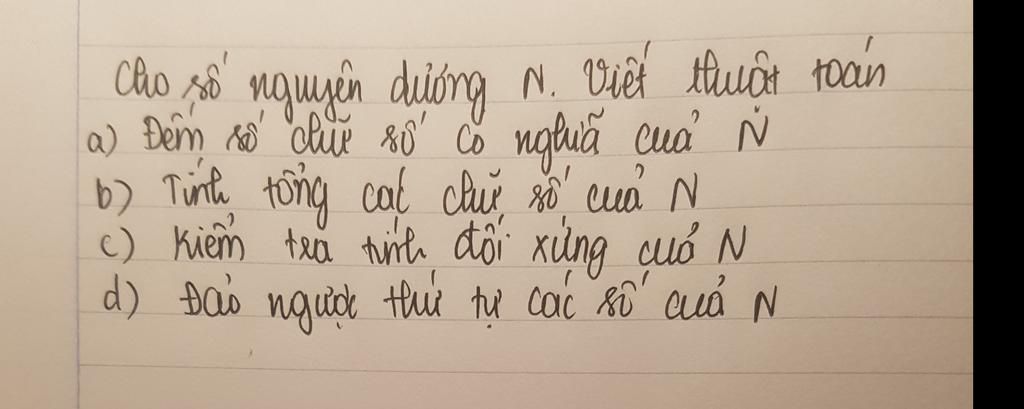 Cho số nguyên dương N. Viết thuật toán
a) Đếm số chữ số có nghĩa của N
b) Tính tổng các chữ số của N
c) Kiểm tra tính đối xứng của N
d) Đảo ngược thứ tự các số của N